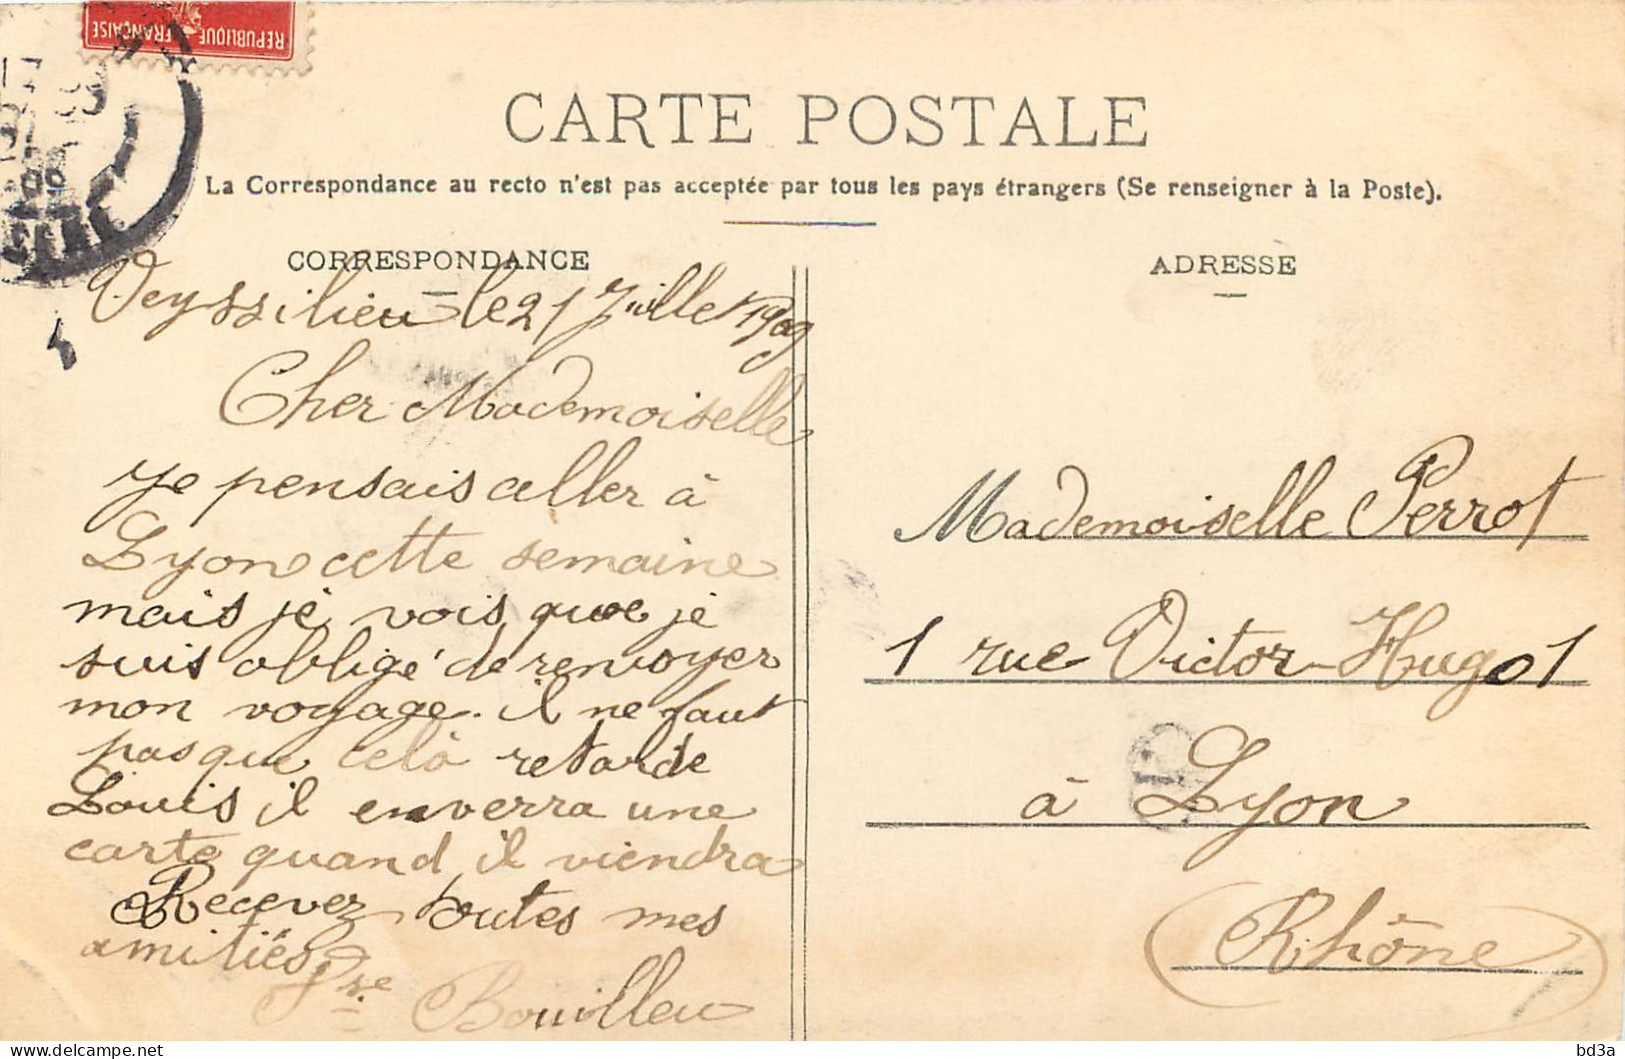 REPUBLIQUE FRANÇAISE
CARTE POSTALE
La Correspondance au recto n'est pas acceptée par tous les pays étrangers (Se renseigner à la Poste).
CORRESPONDANCE
Veyssilieu le 21 Juillet 1909
Cher Mademoiselle
je pensais aller à
Lyon cette semaine
mais je vois que je
suis obligé de renvoyer
mon voyage. il ne faut
pas que celà retarde
Louis il enverra une
carte quand il viendra
Recevez toutes mes
amitiés
Bouilleu
ADRESSE
Mademoiselle Perrot
1 rue Victor-Hugo 1
à Lyon
(Rhône)
bd3a